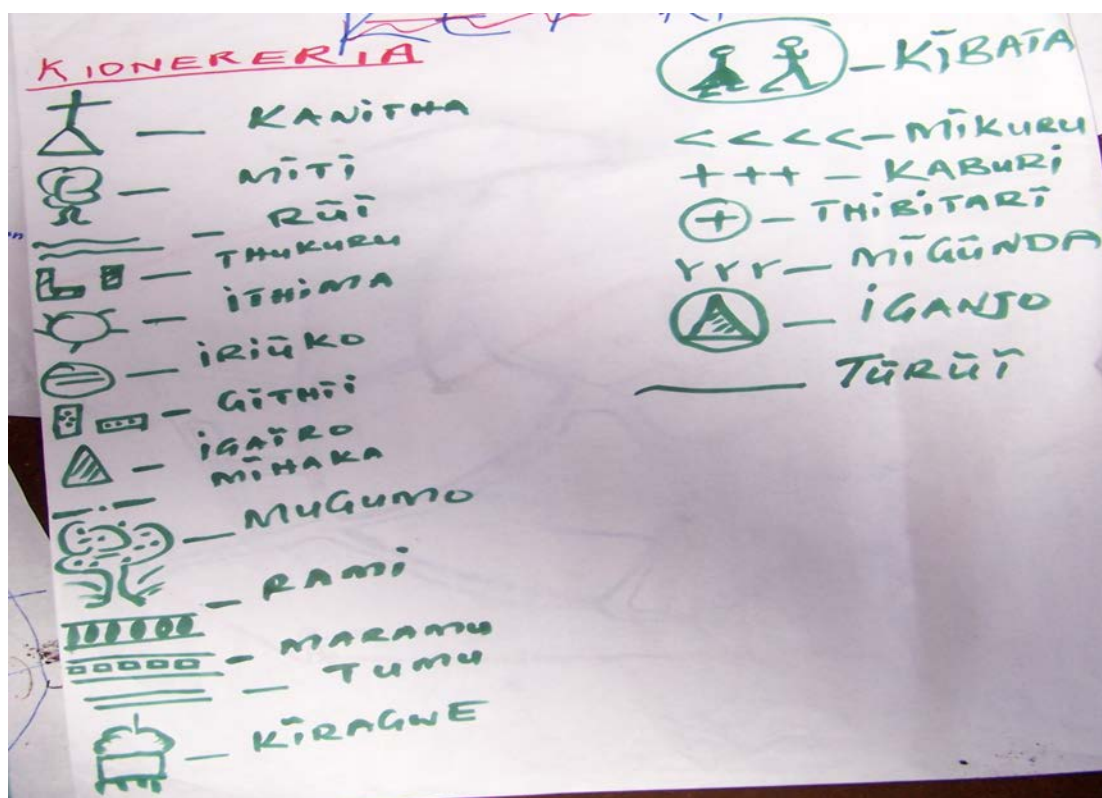 KIONERERIA
KANITHA
MĨTĨ
RŨĨ
THUKURU
ITHIMA
IRIŨKO
GĨTHĨĨ
IGAĨRO
MĨHAKA
MUGUMO
RAMI
MARAMU
TUMU
KĨRAGWE
KĨBATA
MĨKURU
KABURI
THIBITARĨ
MĨGŨNDA
IGANJO
TŨRŨĨ